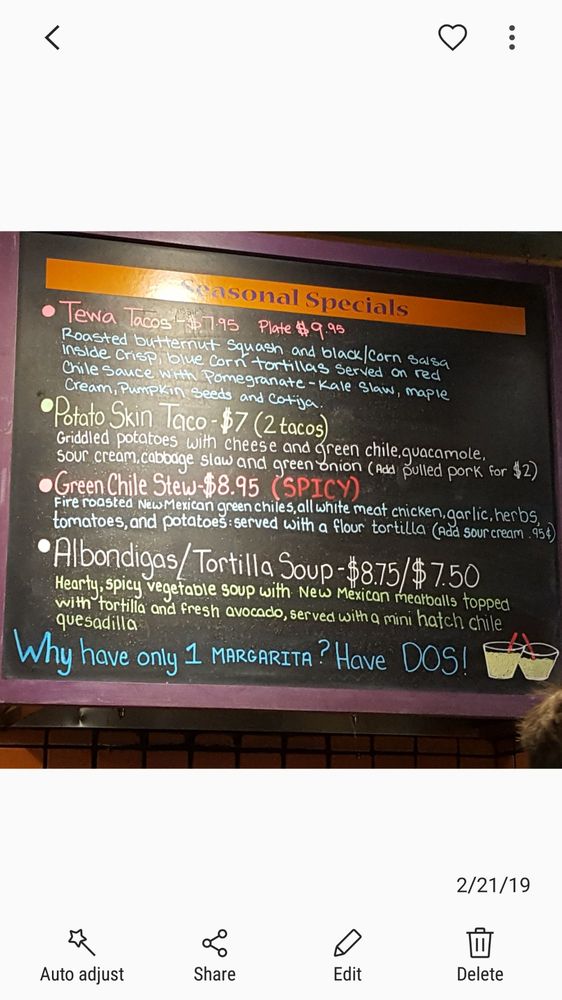 Seasonal Specials
• Tewa Tacos - $7.95 Plate $9.95
Roasted butternut Squash and black/corn salsa
inside crisp, blue corn tortillas served on red
Chile Sauce with Pomegranate - Kale Slaw, maple
Cream, Pumpkin Seeds and Cotija.
• Potato Skin Taco - $7 (2 tacos)
Griddled potatoes with cheese and green chile, guacamole,
sour cream, cabbage slaw and green onion (Add pulled pork for $2)
• Green Chile Stew - $8.95 (SPICY)
Fire roasted New Mexican green chiles, all white meat chicken, garlic, herbs,
tomatoes, and potatoes: served with a flour tortilla (Add sour cream .95¢)
• Albondigas/Tortilla Soup - $8.75/$7.50
Hearty, spicy vegetable soup with New Mexican meatballs topped
with tortilla and fresh avocado, served with a mini hatch chile
quesadilla
Why have only 1 MARGARITA? Have DOS!
2/21/19
Auto adjust Share Edit Delete